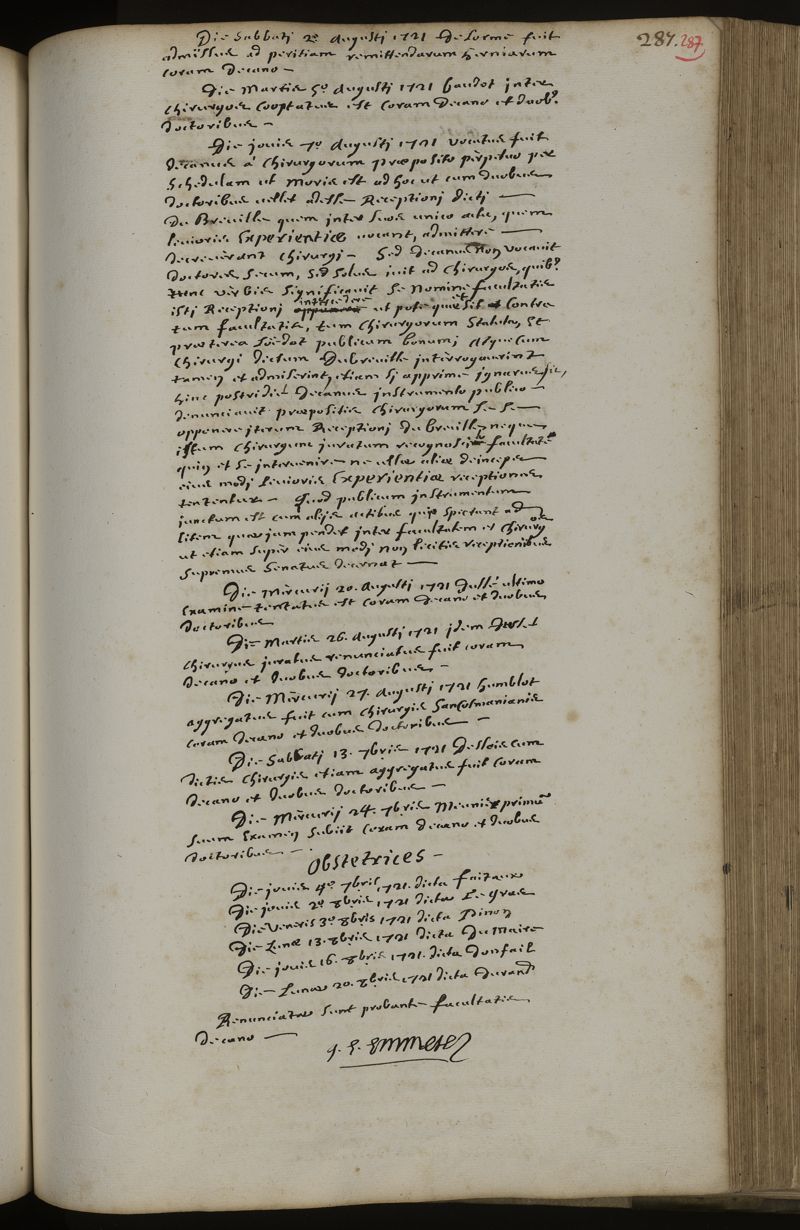 287. 287
Die Sabbatj 2ª Augustj 1721 Delorme fuit
admissus ad peritiam remittendarum herniarum
coram Decano —
Die Martis 5ª Augustj 1721 baudot inter
Chirurgos cooptatus est coram Decano et duobꝰ
doctoribus —
Die jovis 7ª Augustj 1721 vocatus fuit
decanus a Chirurgorum præposito perpetuo per
Schedulam ut moris est ad hoc ut cum duobus
doctoribus vellet adesse Receptionj dictj —
Du Breuille quem inter suos unico actu, quem
levioris Experientiæ vocant, admittere —
decreverant Chirurgj — Sed decanus non vocavit
doctores secum, sed solus ivit ad Chirurgos, quibꝰ
tunc verbis significavit se nomine facultatis
istj Receptionj opponere intercedere ut pote quæ sit et contra
tum facultatis, tum Chirurgorum Statuta, et
præterea lædat publicum bonum; Atque cum
Chirurgj dictum Dubreuille interrogaverint
tamen et admiserint, etiam sj apprime ignarus sit,
hinc postridie Decanus instrumento publico —
denunciavit præpositis Chirurgorum se se —
opponere iterum Receptionj du breuille, neque
istum Chirurgum juratum recognoscere facultatē
quin et se intervenire ne ullæ aliæ deinceps
eius modj levioris Experientiæ receptiones
tententur — Quod publicum instrumentum
junctum est cum alijs actibus quj spectant ad
litem quæ jam pendet inter facultatem et Chirurgos
ut etiam super eius modj non licitis receptionibus
supremus Senatus decernat —
Die Mercurij 20. Augustj 1721 Jullé ultimo
Examine tentatus est coram decano et duobus
doctoribus
Die Martis 26. Augustj 1721 idem Jullé
Chirurgus juratus renunciatus fuit coram
decano et duobus doctoribus —
Die Mercurij 27. Augustj 1721 humblot
aggregatus fuit cum Chirurgis Sancosmanianis
coram decano et duobus doctoribus —
Die Sabbatj 13. 7bris 1721 Deslois cum
dictis Chirurgis etiam aggregatus fuit coram
decano et duobus doctoribus —
Die Mercurij 24. 7bris Meunier primū
suum Examen subiit coram decano et duobus
doctoribus —
Obstetrices —
Die jovis 4ª 7bris 1721. dicta faitaux
Die jovis 2ª 8bris 1721 dicta Le Gras
Die Veneris 3ª 8bris 1721 dicta Pinon
Die Lunæ 13. 8bris 1721 dicta Du Maire
Die jovis 16. 8bris 1721. dicta Donfail
Die Lunæ 20. 8bris 1721 dicta Durand
Renunciatæ sunt probante facultatis
decano —
J. E. Emmerez